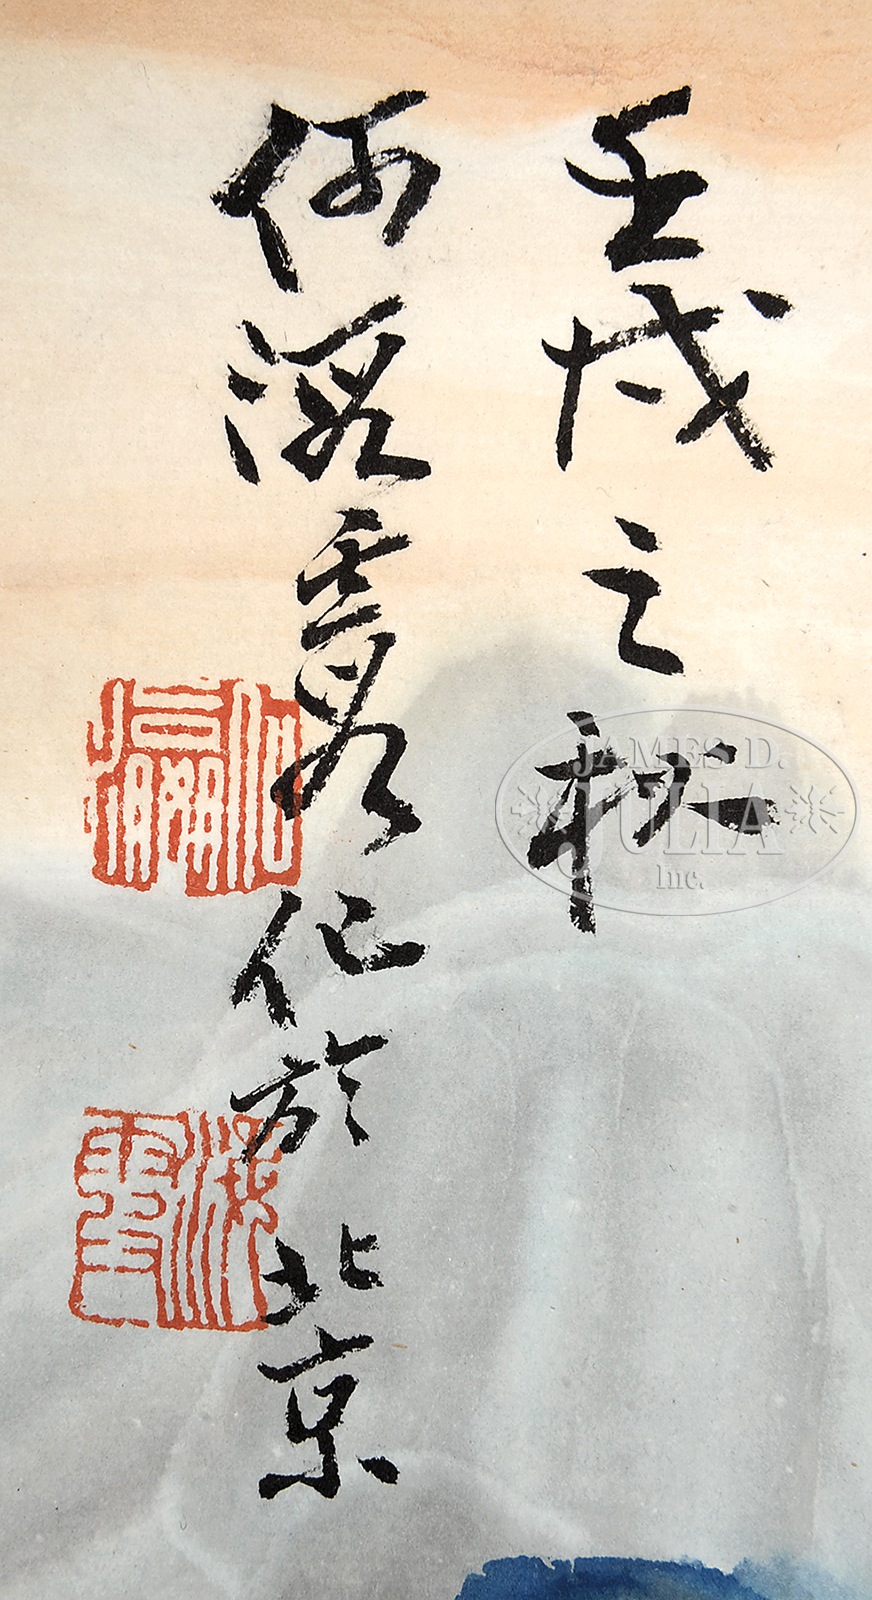 壬戌之秋
何海霞作於北京
JAMES D.
JULIA
Inc.